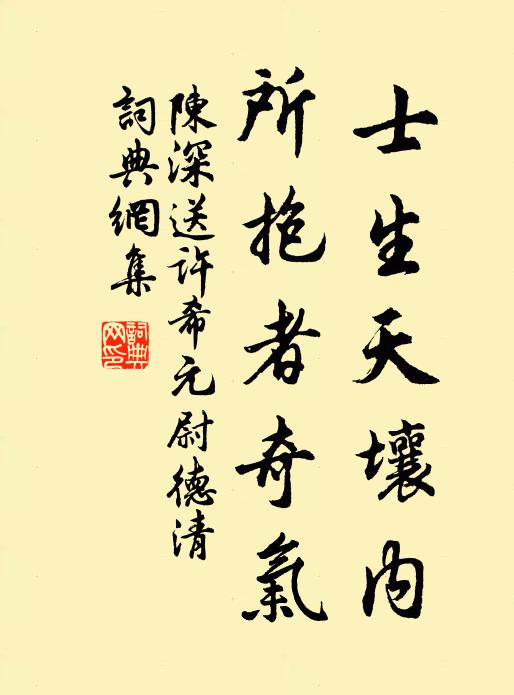 士生天壤内
所抱者奇氣
陳深送許希元尉德清
詞典網集
詞典网印